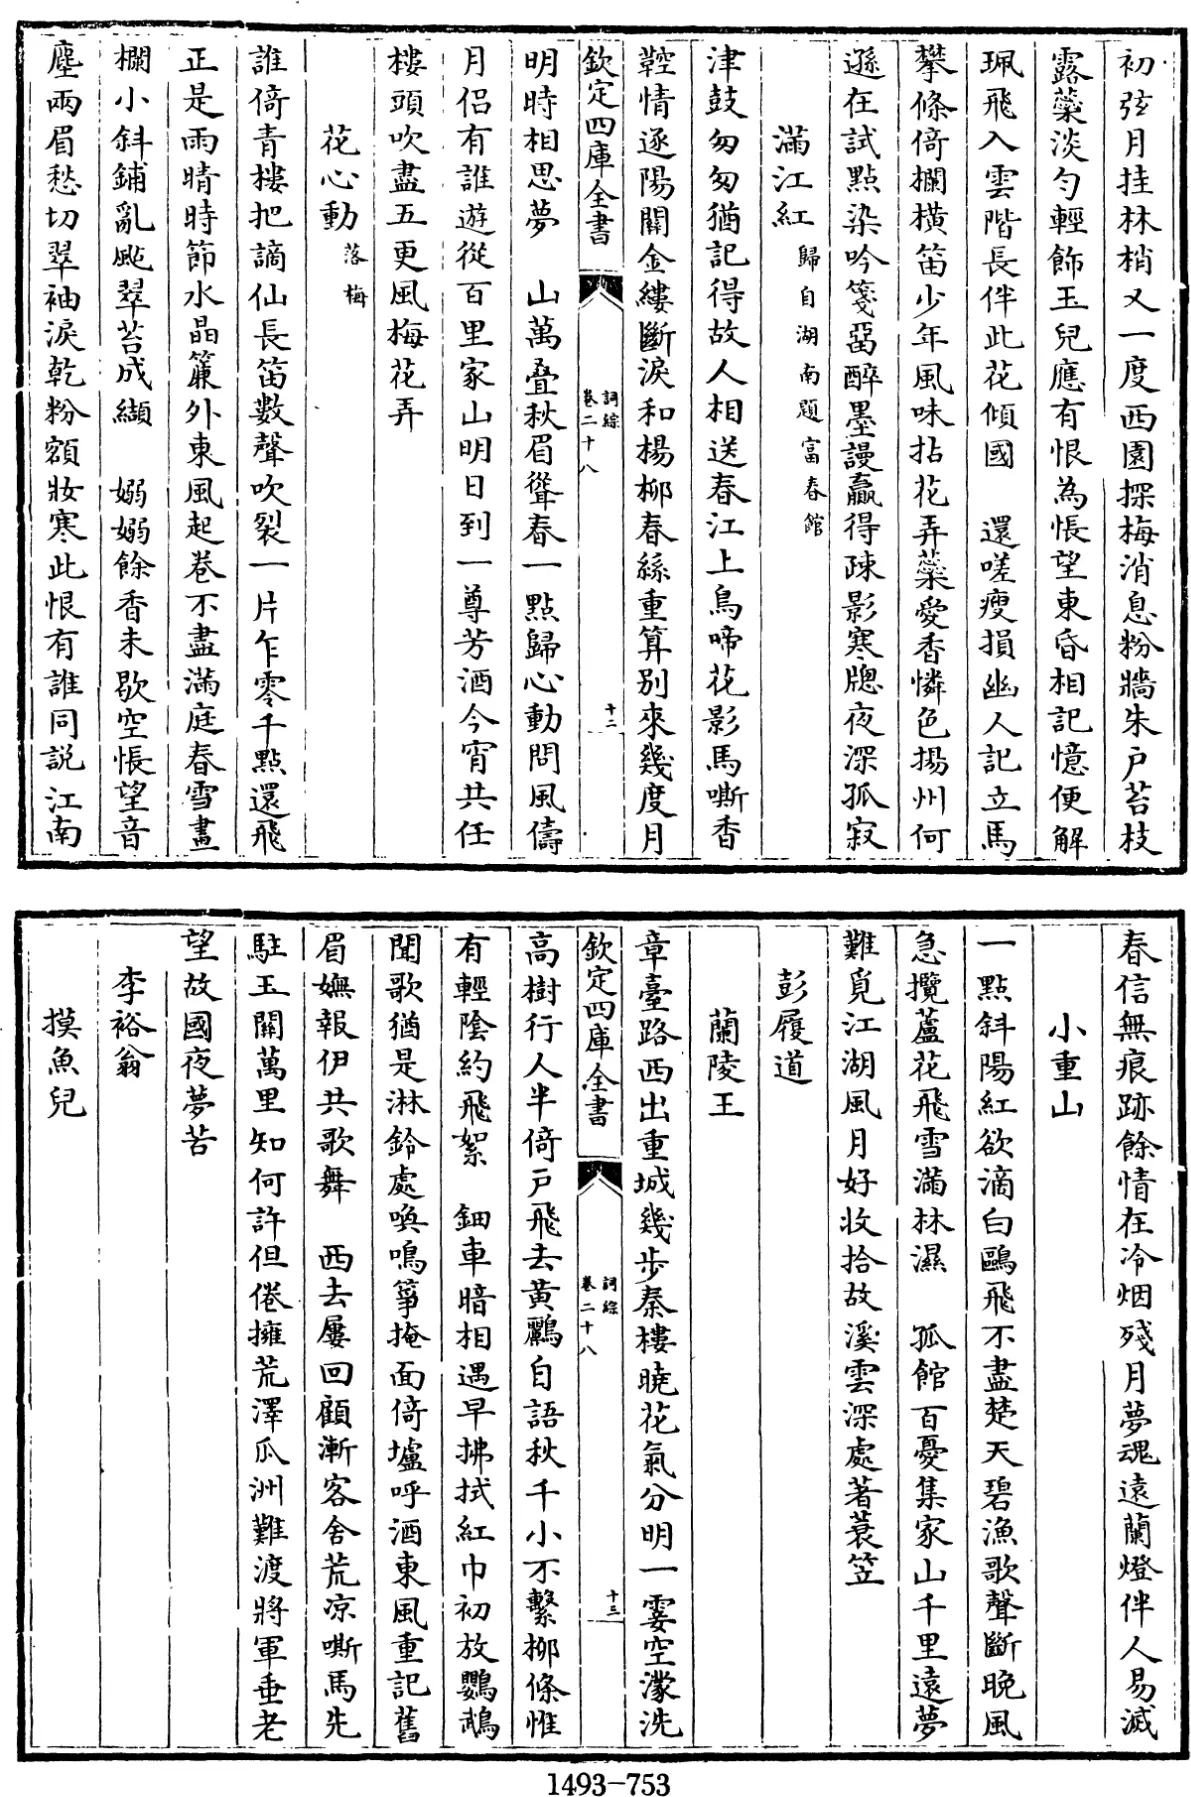 初弦月挂林梢又一度西園探梅消息粉牆朱户苔枝
露蘂淡匀輕飾玉兒應有恨為悵望東昏相記憶便解
珮飛入雲階長伴此花傾國　還嗟瘦損幽人記立馬
攀條倚欄橫笛少年風味拈花弄蘂愛香憐色揚州何
遜在試點染吟箋留醉墨謾贏得疎影寒牕夜深孤寂
滿江紅 歸自湖南題富春館
津鼓匆匆猶記得故人相送春江上鳥啼花影馬嘶香
鞚情逐陽關金縷斷淚和楊柳春絲重算别來幾度月
欽定四庫全書
詞綜
卷二十八
十二
明時相思夢　山萬疊秋眉聳春一點歸心動問風儔
月侣有誰遊從百里家山明日到一尊芳酒今宵共任
樓頭吹盡五更風梅花弄
花心動 落梅
誰倚青樓把謫仙長笛數聲吹裂一片乍零千點還飛
正是雨晴時節水晶簾外東風起卷不盡滿庭春雪畫
欄小斜鋪亂颭翠苔成纈　嫋嫋餘香未歇空悵望音
塵兩眉愁切翠袖淚乾粉額妝寒此恨有誰同説江南
春信無痕跡餘情在冷烟殘月夢魂遠蘭燈伴人易滅
小重山
一點斜陽紅欲滴白鷗飛不盡楚天碧漁歌聲斷晚風
急攪蘆花飛雪滿林濕　孤館百憂集家山千里遠夢
難覓江湖風月好收拾故溪雲深處著蓑笠
彭履道
蘭陵王
章臺路西出重城幾步秦樓曉花氣分明一霎空濛洗
欽定四庫全書
詞綜
卷二十八
十三
高樹行人半倚戸飛去黄鸝自語秋千小不繫柳條惟
有輕陰約飛絮　鈿車暗相遇早拂拭紅巾初放鸚鵡
聞歌猶是淋鈴處喚鳴箏掩面倚壚呼酒東風重記舊
眉嫵報伊共歌舞　西去屢回顧漸客舍荒凉嘶馬先
駐玉關萬里知何許但倦擁荒澤瓜洲難渡將軍垂老
望故國夜夢苦
李裕翁
摸魚兒
1493-753